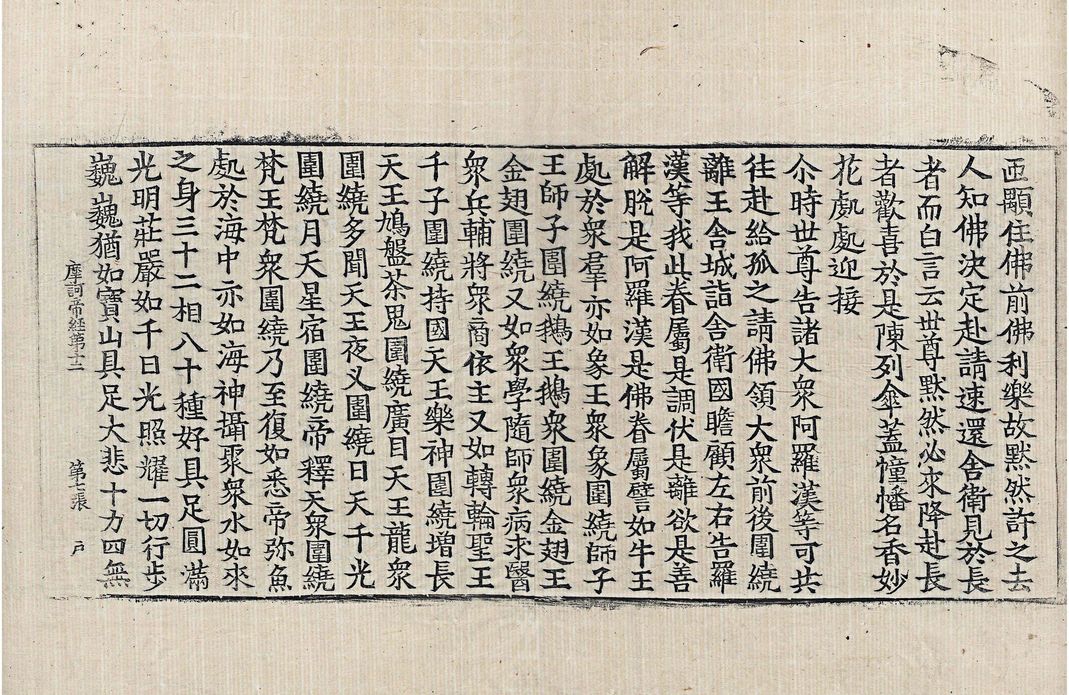 西顯住佛前佛利樂故黙然許之去
人知佛決定赴請速還舍衛見於長
者而白言云世尊黙然必來降赴長
者歡喜於是陳列傘蓋憧幡名香妙
花處處迎接
尒時世尊告諸大衆阿羅漢等可共
往赴給孤之請佛領大衆前後圍繞
離王舍城詣舍衛國瞻顧左右告羅
漢等我此眷屬是調伏是離欲是善
解脫是阿羅漢是佛眷屬譬如牛王
處於衆羣亦如象王衆象圍繞師子
王師子圍繞鵝王鵝衆圍繞金翅王
金翅圍繞又如衆學隨師衆病求醫
衆兵輔將衆商依主又如轉輪聖王
千子圍繞持國天王樂神圍繞增長
天王鳩盤茶鬼圍繞廣目天王龍衆
圍繞多聞天王夜叉圍繞日天千光
圍繞月天星宿圍繞帝釋天衆圍繞
梵王梵衆圍繞乃至復如悉帝弥魚
處於海中亦如海神攝聚衆水如來
之身三十二相八十種好具足圓滿
光明莊嚴如千日光照耀一切行步
巍巍猶如寶山具足大悲十力四無
摩訶帝経第十二 第七張 戶